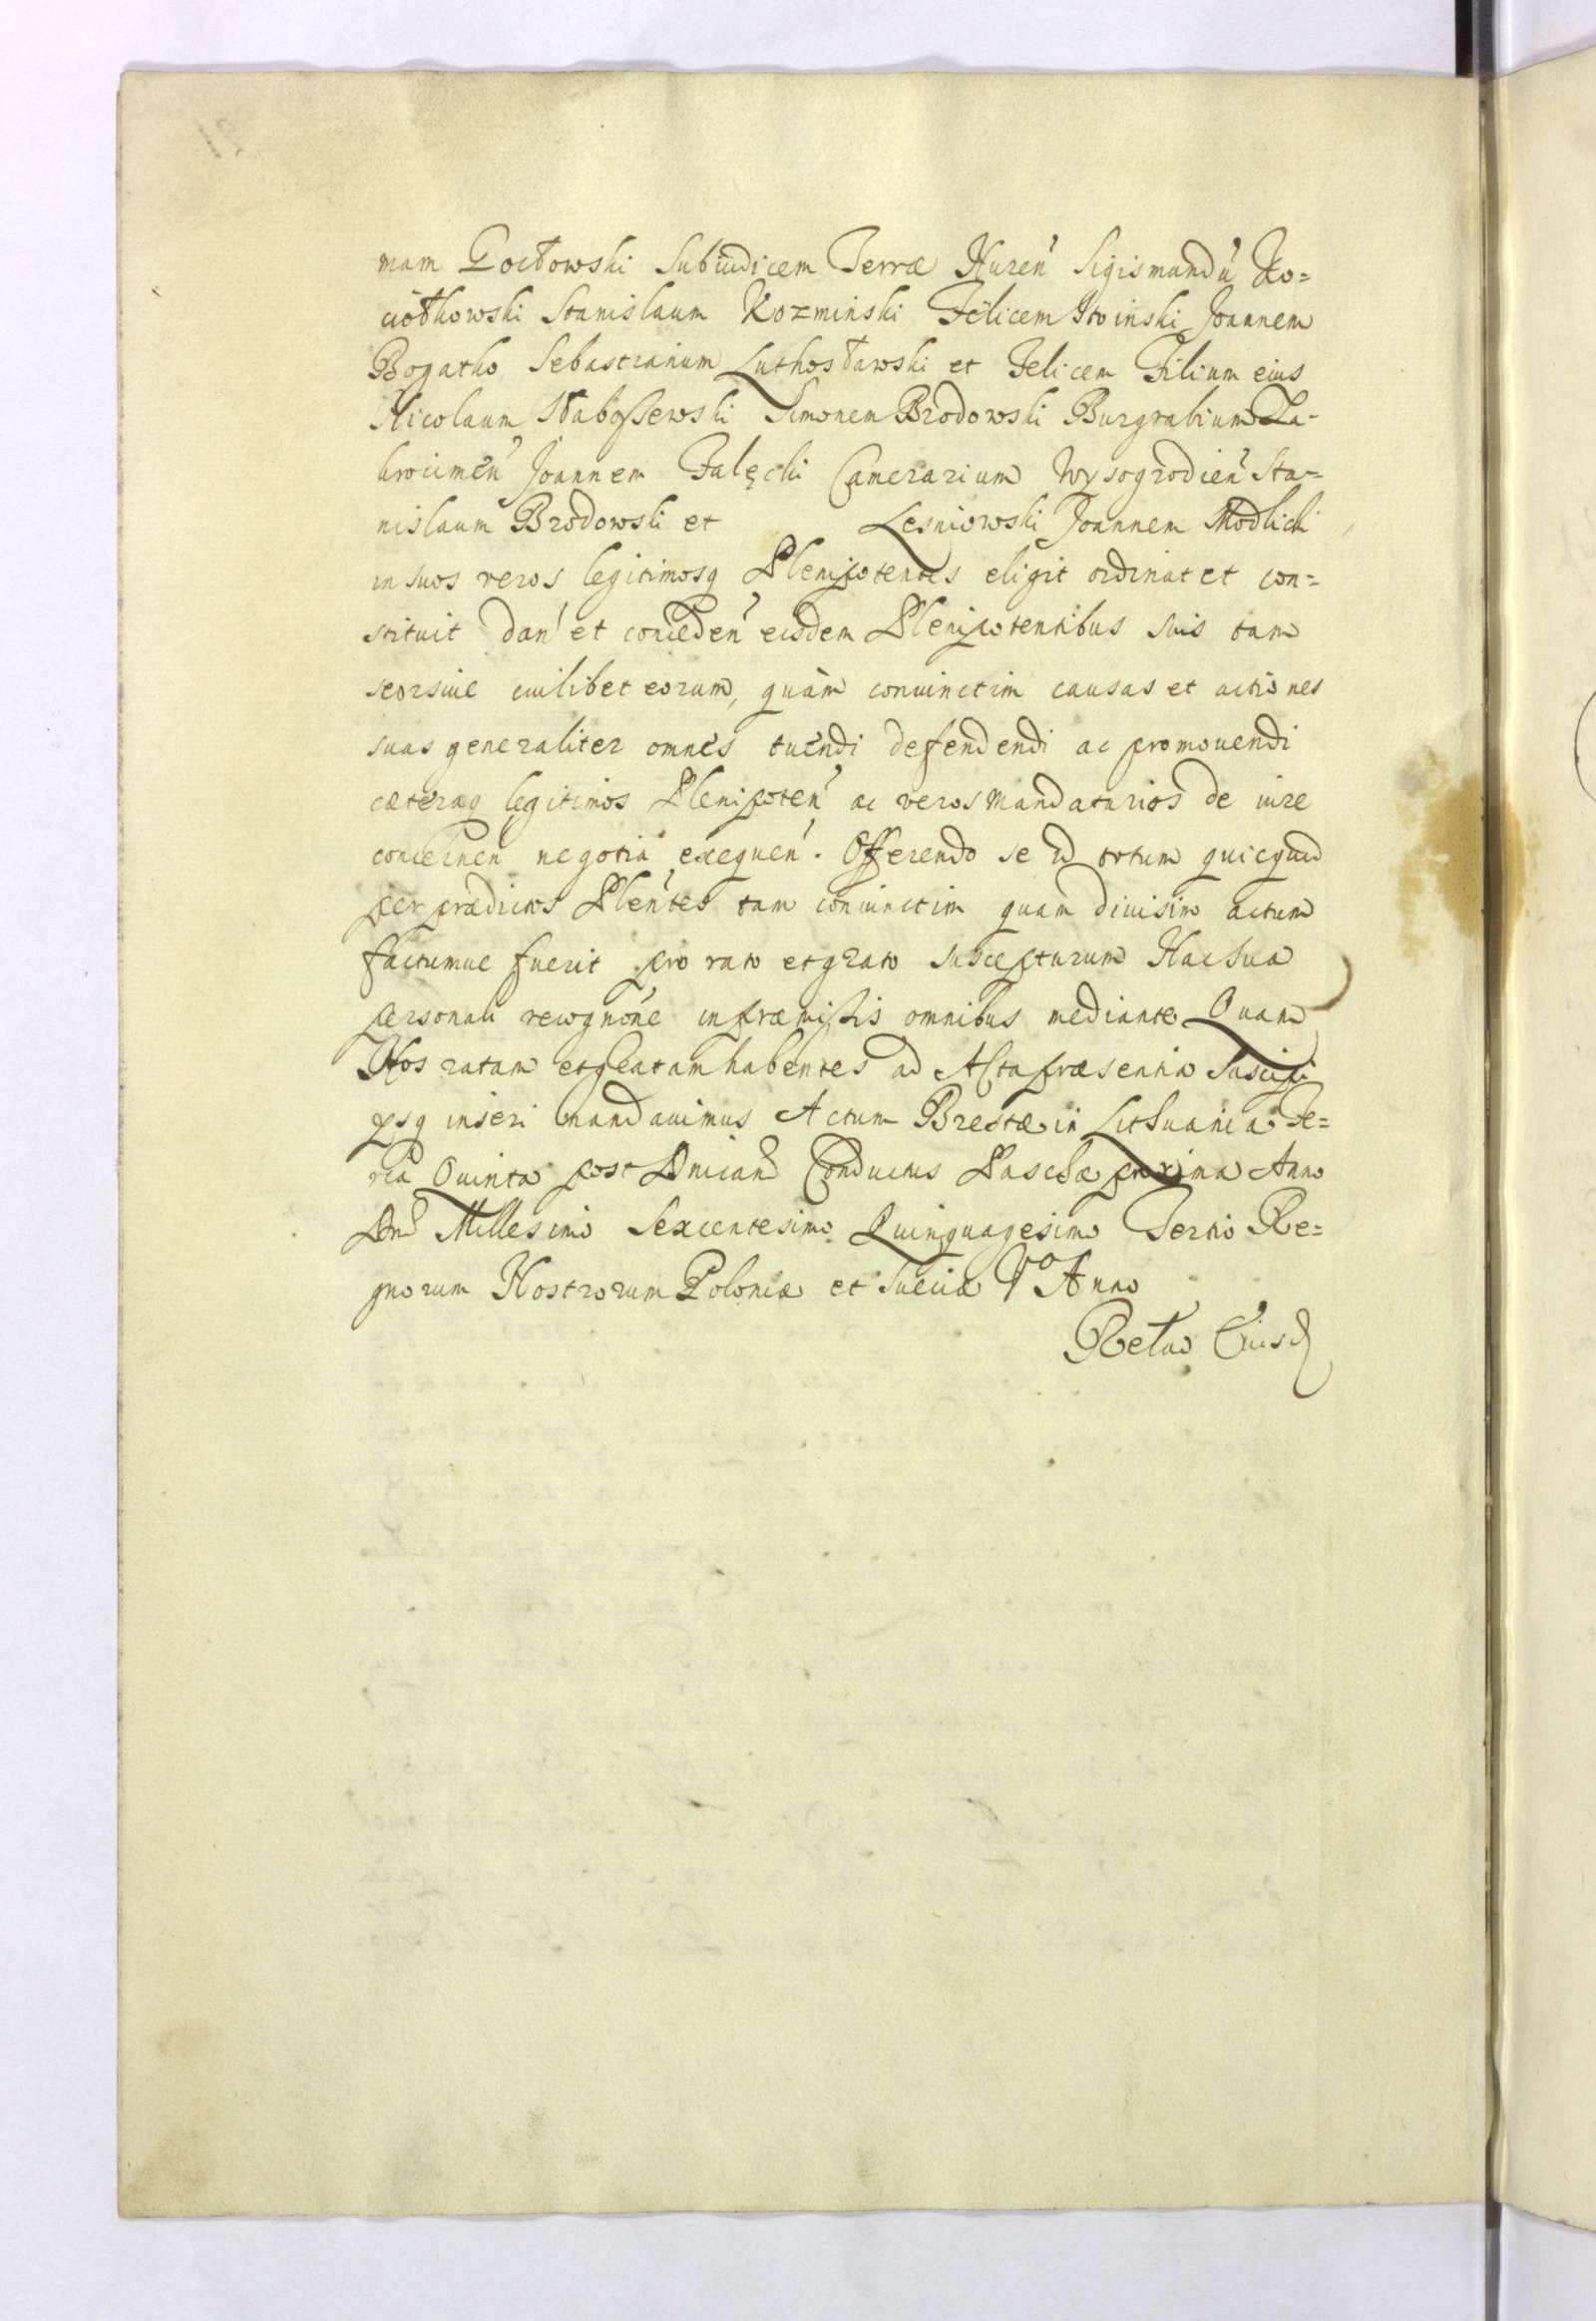 mam Gocłowski Subiudicem Terræ Nurén Sigismundú Ko=
ciołkowski Stanislaum Kozminski Felicem Iłwinski Joannem
Bogatko Sebastianum Luthosławski et Felicem Filium eius
Nicolaum Słabossewski Simonem Brodowski Burgrabium Za-
krocimén Joannem Falęcki Camerarium Wysogrodién Sta=
nislaum Brodowski et Lesniowski Joannem Modlicki
in suos veros legitimosq Plenipotentes eligit ordinat et con=
stituit dań et conceden eisdem Plenipotentibus suis tam
seorsiue cuilibet eorum, quàm coniunctim causas et actiones
suas generaliter omnes tuendi defendendi ac promouendi
cæteraq legitimos Plenipoten ac veros Mandatarios de iure
concernen negotia exequen. Offerendo se id totum quicquid
per prædictos Plentes tam coniunctim quam diuisim actum
factumue fuerit pro rato et grato suscepturum Hac sua
personali recognóne in præmissis omnibus mediante Quam
Nos ratam et gratam habentes ad Acta præsentia suscipi
ysq inseri mandauimus Actum Brestæ in Lithuania Fe=
ria Quinta post Dnicam Conductus Paschæ proxima Anno
Dni Millesimo Sexcentesimo Quinquagesimo Tertio Re=
gnorum Nostrorum Poloniæ et Sueciæ Vo Anno
Relao Eiusd